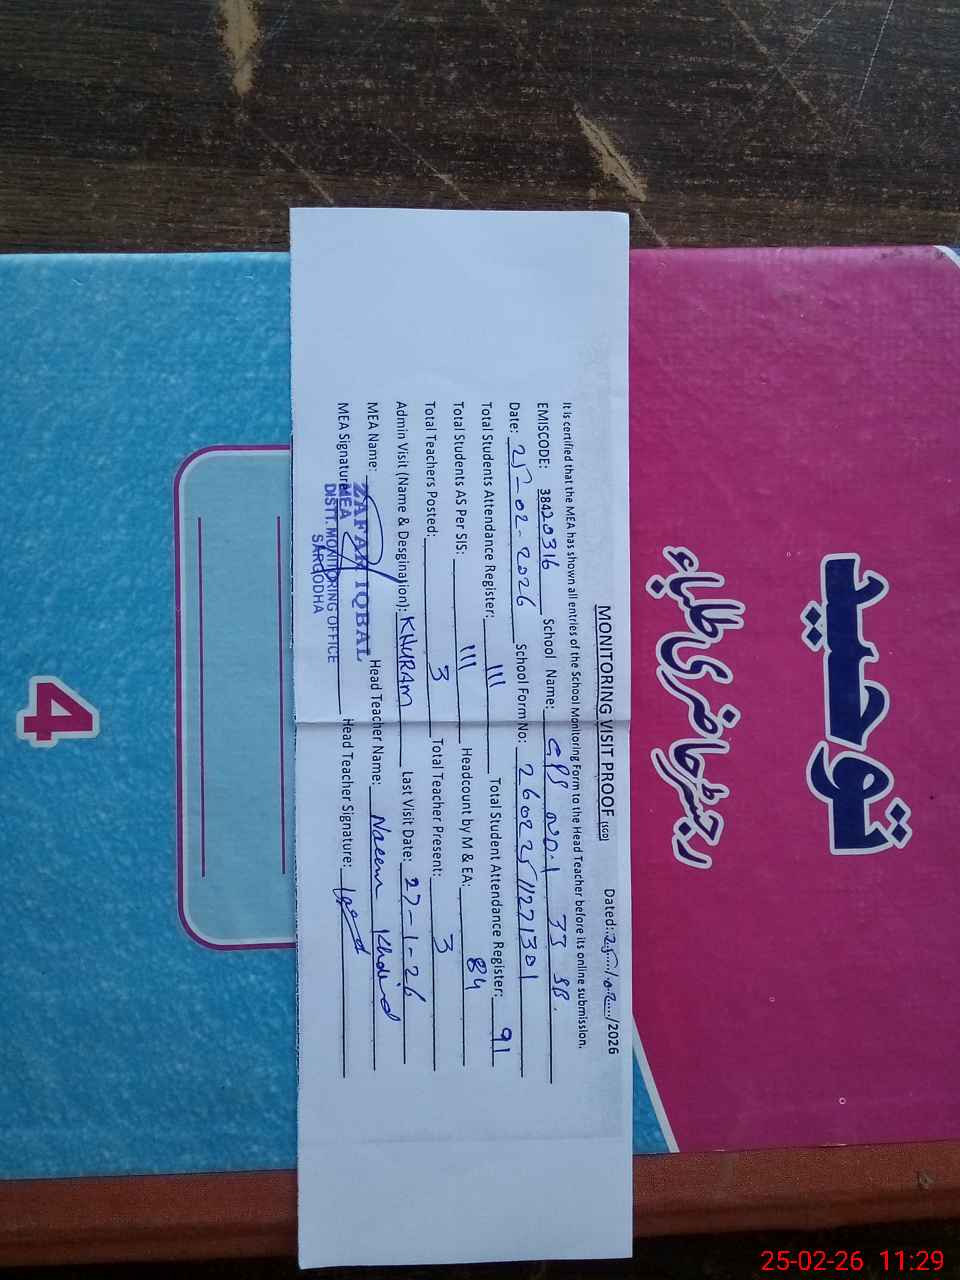 MONITORING VISIT PROOF (SGD) Dated:..25..../..02..../2026
It is certified that the MEA has shown all entries of the School Monitoring Form to the Head Teacher before its online submission.
EMISCODE: 38420316 School Name: GPS NO.1 33 SB.
Date: 25-02-2026 School Form No: 26022511271301
Total Students Attendance Register: 111 Total Student Attendance Register: 91
Total Students AS Per SIS: 111 Headcount by M & EA: 84
Total Teachers Posted: 3 Total Teacher Present: 3
Admin Visit (Name & Desgination): KHURAM Last Visit Date: 27-1-26
MEA Name: ZAFAR IQBAL Head Teacher Name: Naeem Khalid
MEA Signature: Head Teacher Signature:
MEA
DISTT. MONITORING OFFICE
SARGODHA
توحید
رجسٹر حاضری طلباء
4
25-02-26 11:29